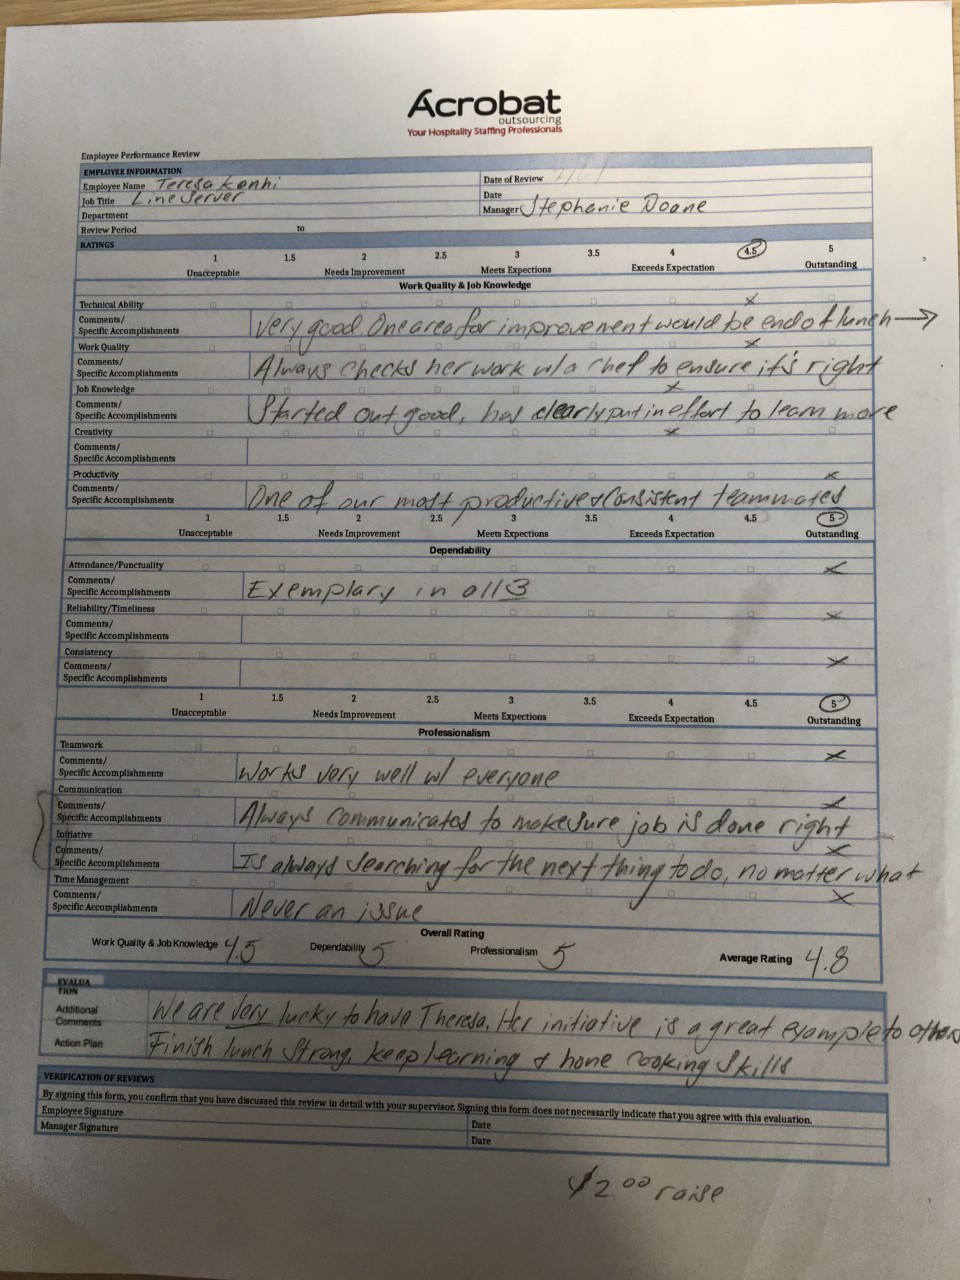 Acrobat
outsourcing
Your Hospitality Staffing Professionals
Employee Performance Review
EMPLOYEE INFORMATION
Employee Name Teresa Kanhi
Date of Review
Job Title Line Server
Date
Department
Manager Stephanie Doane
Review Period to
RATINGS
1 1.5 2 2.5 3 3.5 4 4.5 5
Unacceptable Needs Improvement Meets Expections Exceeds Expectation Outstanding
Work Quality & Job Knowledge
Technical Ability
Comments/
Specific Accomplishments
Very good. One area for improvement would be end of lunch →
Work Quality
Comments/
Specific Accomplishments
Always checks her work w/a chef to ensure it's right
Job Knowledge
Comments/
Specific Accomplishments
Started out good, has clearly put in effort to learn more
Creativity
Comments/
Specific Accomplishments
Productivity
Comments/
Specific Accomplishments
One of our most productive & consistent teammates
1 1.5 2 2.5 3 3.5 4 4.5 5
Unacceptable Needs Improvement Meets Expections Exceeds Expectation Outstanding
Dependability
Attendance/Punctuality
Comments/
Specific Accomplishments
Exemplary in all 3
Reliability/Timeliness
Comments/
Specific Accomplishments
Consistency
Comments/
Specific Accomplishments
1 1.5 2 2.5 3 3.5 4 4.5 5
Unacceptable Needs Improvement Meets Expections Exceeds Expectation Outstanding
Professionalism
Teamwork
Comments/
Specific Accomplishments
Works very well w/ everyone
Communication
Comments/
Specific Accomplishments
Always communicates to make sure job is done right
Initiative
Comments/
Specific Accomplishments
Is always searching for the next thing to do, no matter what
Time Management
Comments/
Specific Accomplishments
Never an issue
Overall Rating
Work Quality & Job Knowledge 4.5 Dependability 5 Professionalism 5 Average Rating 4.8
EVALUA
TION
Additional
Comments
We are very lucky to have Theresa. Her initiative is a great example to others
Action Plan
Finish lunch strong, keep learning & hone cooking skills
VERIFICATION OF REVIEWS
By signing this form, you confirm that you have discussed this review in detail with your supervisor. Signing this form does not necessarily indicate that you agree with this evaluation.
Employee Signature
Date
Manager Signature
Date
$2.00 raise